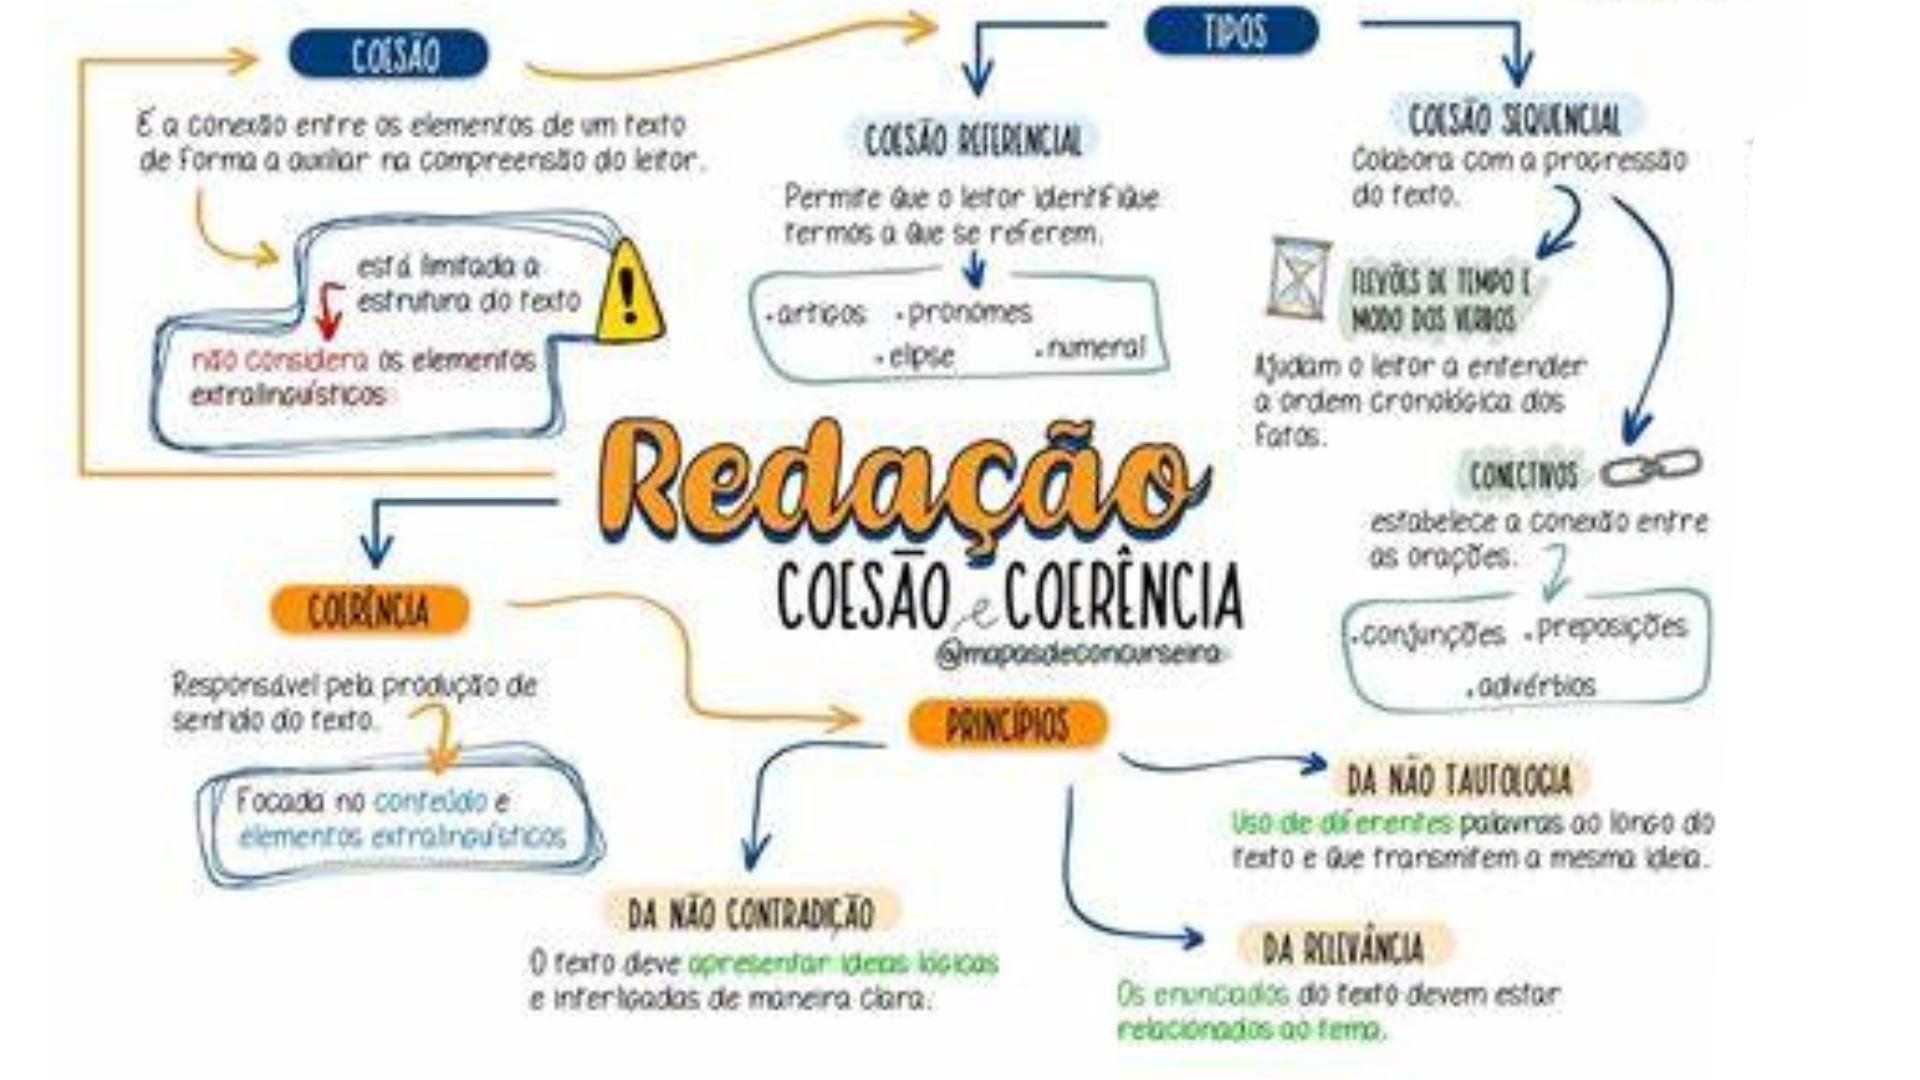 COESÃO
É a conexão entre os elementos de um texto
de forma a auxiliar na compreensão do leitor.
está limitada a
estrutura do texto
não considera os elementos
extralinguísticos
TIPOS
COESÃO REFERENCIAL
Permite que o leitor identifique
termos a que se referem.
.artigos .pronomes
.elipse .numeral
COESÃO SEQUENCIAL
Colabora com a progressão
do texto.
FLEXÕES DE TEMPO E
MODO DOS VERBOS
Ajudam o leitor a entender
a ordem cronológica dos
fatos.
CONECTIVOS
estabelece a conexão entre
as orações.
.conjunções .preposições
.advérbios
Redação
COESÃO e COERÊNCIA
@mapasdeconcurseira
COERÊNCIA
Responsável pela produção de
sentido do texto.
Focada no conteúdo e
elementos extralinguísticos
PRINCÍPIOS
DA NÃO CONTRADIÇÃO
O texto deve apresentar ideias lógicas
e interligadas de maneira clara.
DA NÃO TAUTOLOGIA
Uso de diferentes palavras ao longo do
texto e que transmitem a mesma ideia.
DA RELEVÂNCIA
Os enunciados do texto devem estar
relacionados ao tema.